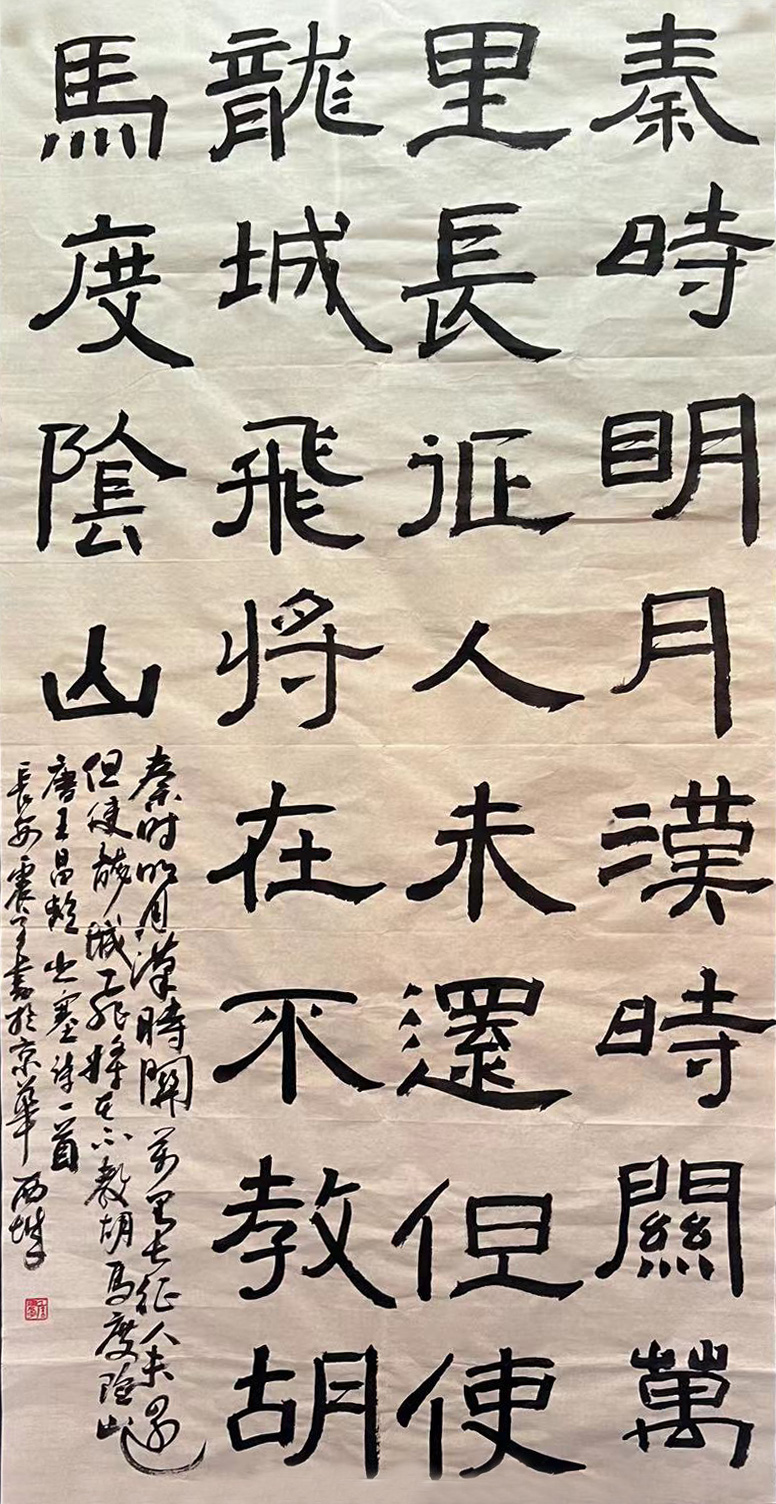 秦時明月漢時關萬
里長征人未還但使
龍城飛將在不教胡
馬度陰山
秦时明月漢時關萬里长征人未還
但使龍城飞將在不教胡馬度陰山
唐王昌龄出塞诗一首
長安震 书於京華西城